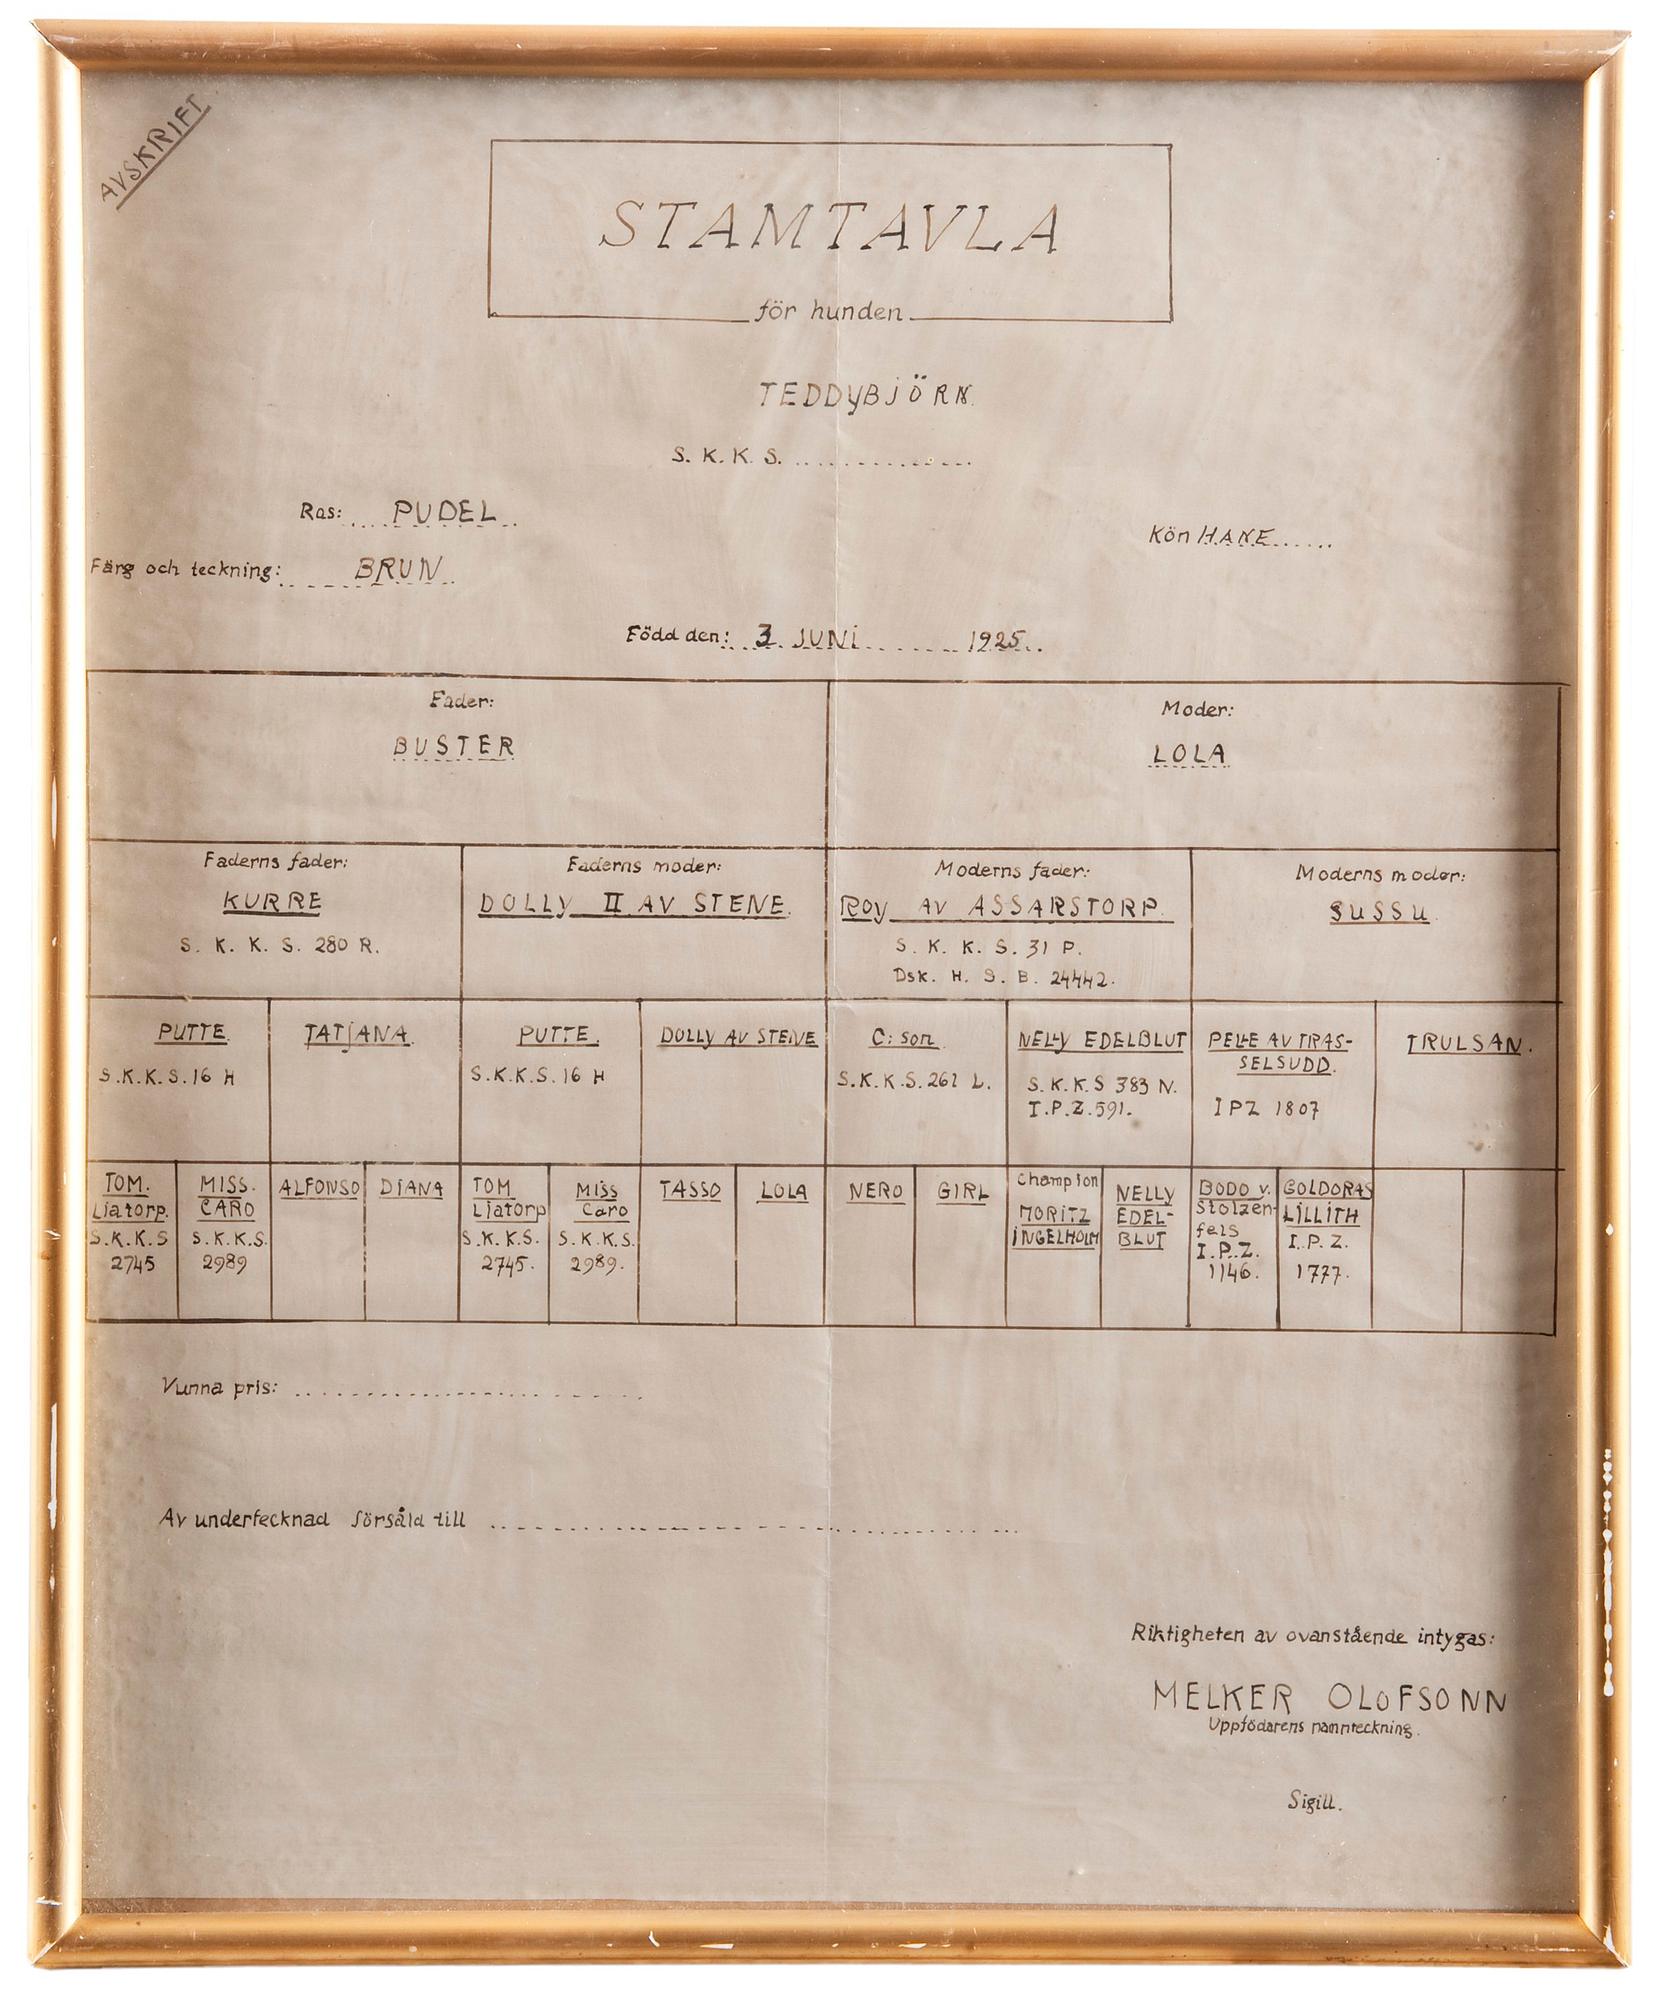 AVSKRIFT
STAMTAVLA
för hunden
TEDDYBJÖRN.
S. K. K. S. ..............
Ras: PUDEL
Kön HANE......
Färg och teckning: BRUN
Född den: 3 JUNI 1925.
Fader:
BUSTER
Moder:
LOLA
Faderns fader:
KURRE
S. K. K. S. 280 R.
Faderns moder:
DOLLY II AV STENE.
Moderns fader:
ROY AV ASSARSTORP.
S. K. K. S. 31 P.
Dsk. H. S. B. 24442.
Moderns moder:
SUSSU.
PUTTE.
S.K.K.S. 16 H
TATJANA.
PUTTE.
S.K.K.S. 16 H
DOLLY AV STENE
C:son.
S.K.K.S. 261 L.
NELLY EDELBLUT
S. K. K. S 383 N.
I.P.Z. 591.
PELLE AV TRAS-
SELSUDD.
IPZ 1807
TRULSAN.
TOM.
Liatorp.
S.K.K.S
2745
MISS.
CARO
S.K.K.S.
2989
ALFONSO
DIANA
TOM
Liatorp
S.K.K.S.
2745.
MISS
Caro
S.K.K.S.
2989.
TASSO
LOLA
NERO
GIRL
Champion
MORITZ
INGELHOLM
NELLY
EDEL-
BLUT
BODO v.
Stolzen-
fels
I.P.Z.
1146.
GOLDORAS
LILLITH
I.P.Z.
1777.
Vunna pris: ..............................
Av undertecknad försåld till ..............................
Riktigheten av ovanstående intygas:
MELKER OLOFSONN
Uppfödarens namnteckning.
Sigill.